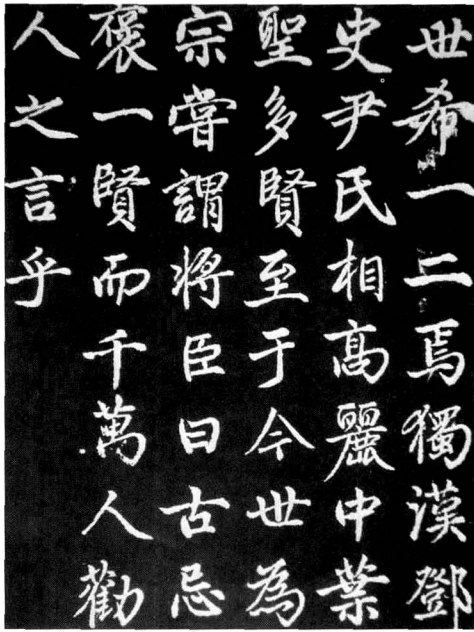 世希一二焉獨漢鄧
史尹氏相高麗中葉
聖多賢至于今世為
宗嘗謂將臣曰古忌
褒一賢而千萬人勸
人之言乎